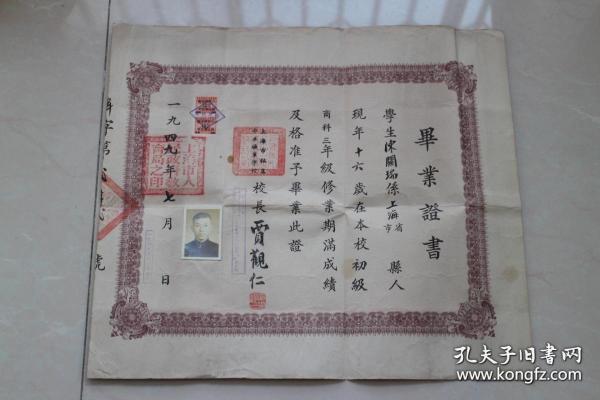 畢業證書
學生陳關瑞係上海省市縣人
現年十六歲在本校初級
商科三年級修業期滿成績
及格准予畢業此證
校長 賈觀仁
一九四九年七月 日
上海市人民政府教育局之印
號
孔夫子旧书网
www.kongfz.com